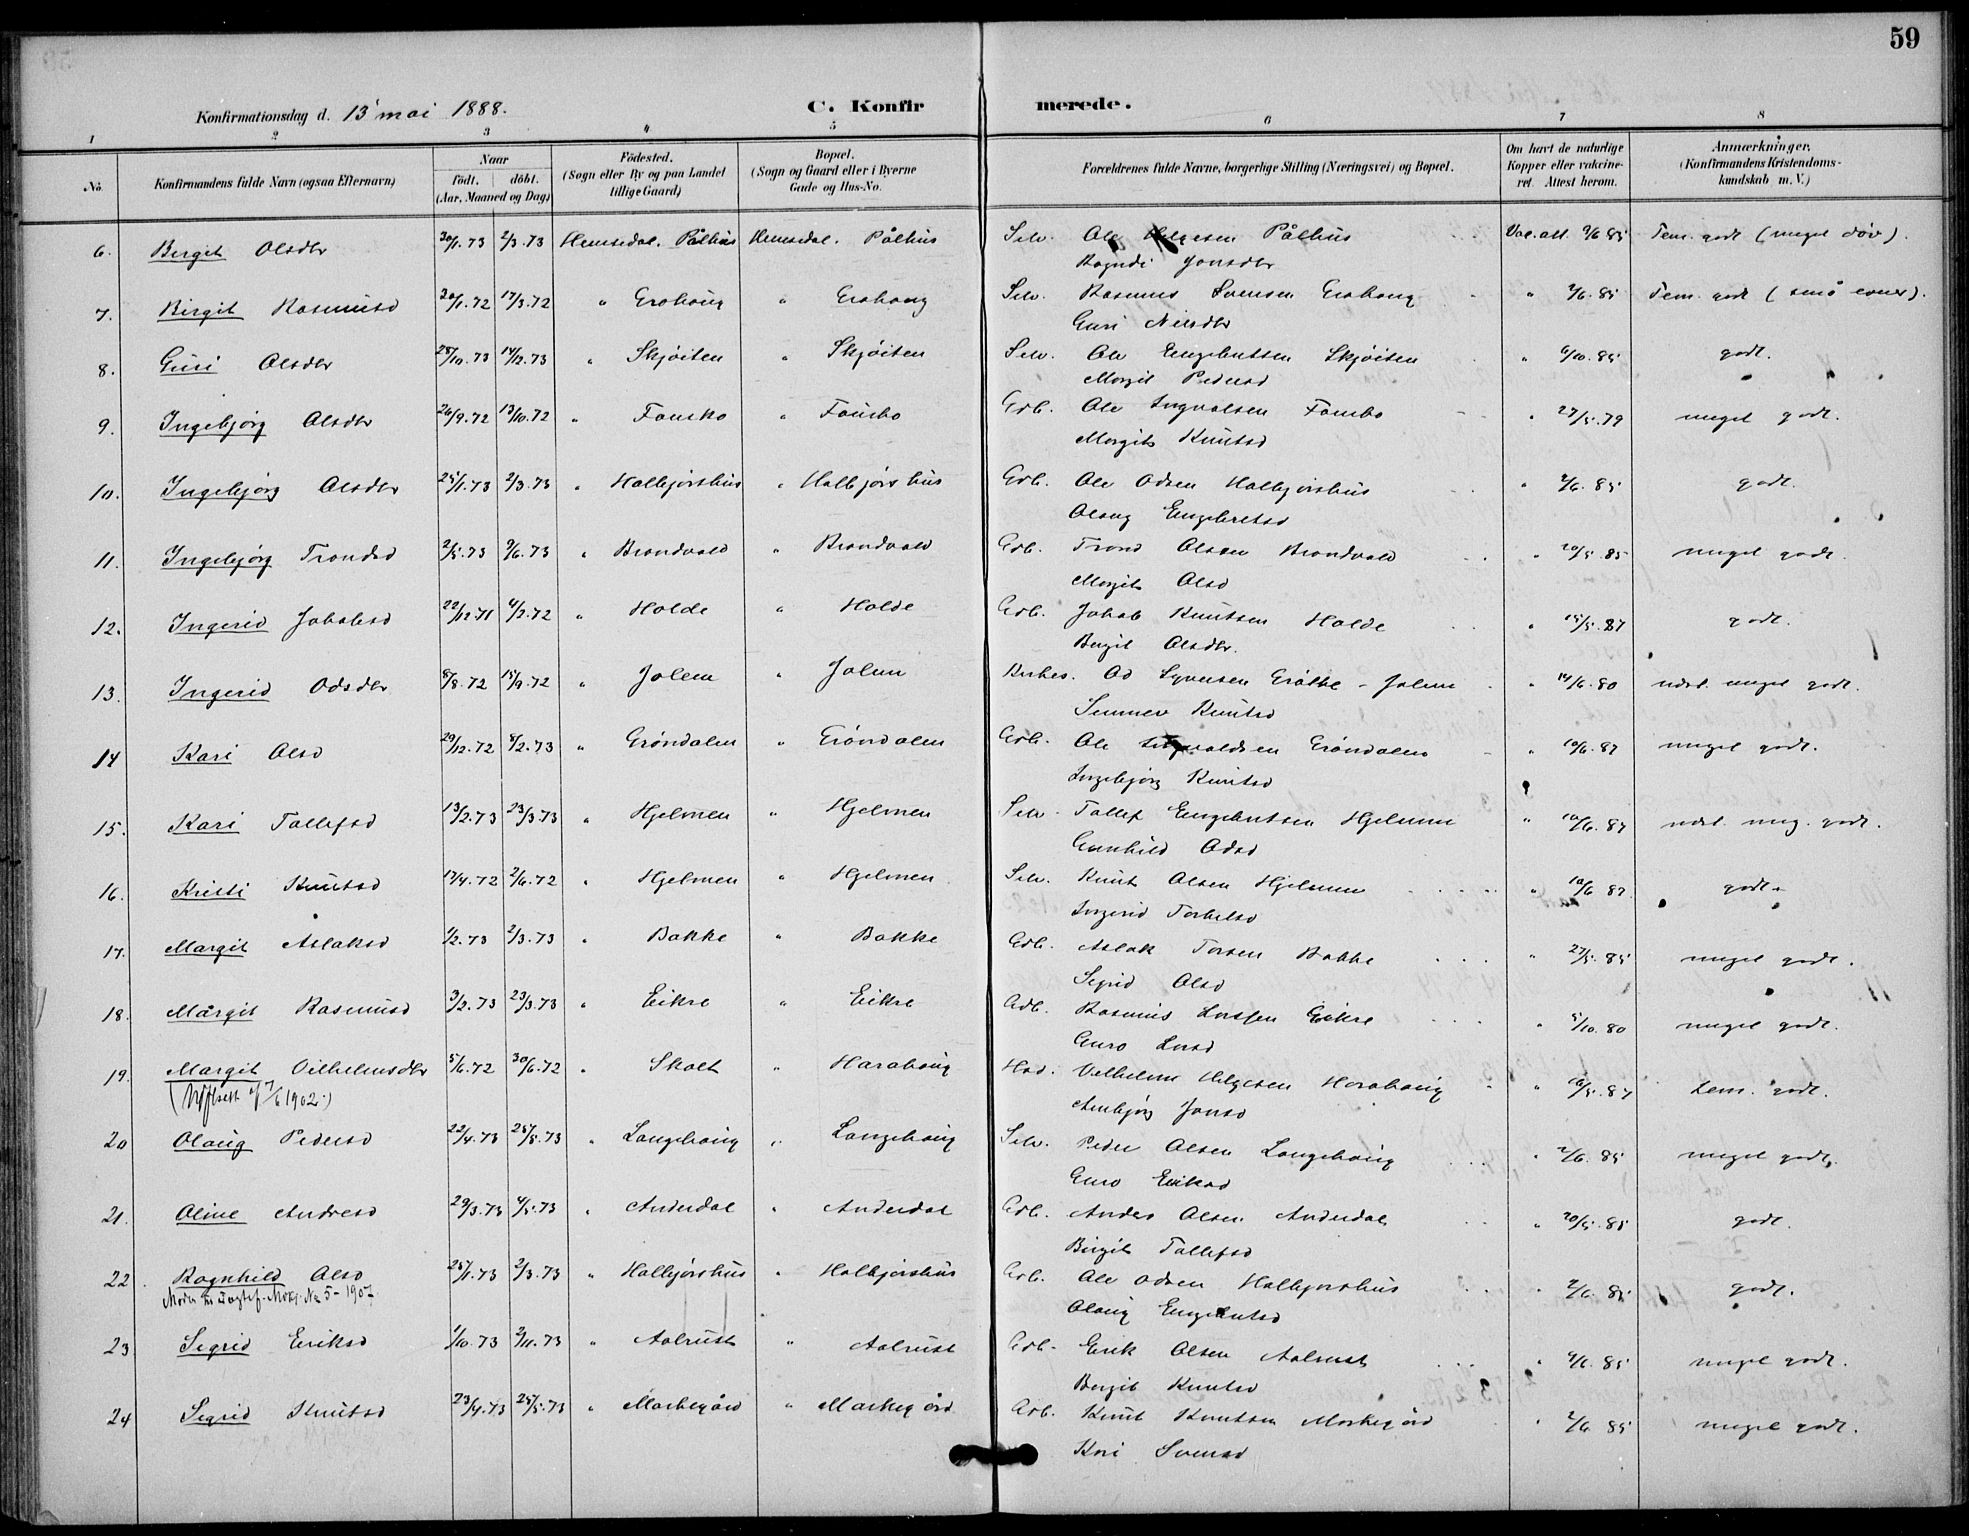 59
Konfirmationsdag d. 13' mai 1888. C. Konfirmerede.
1 2 3 4 5 6 7 8
No. Konfirmandens fulde Navn (ogsaa Efternavn) Naar Födt. döbt. (Aar, Maaned og Dag) Födested. (Sogn eller By og paa Landet tillige Gaard) Bopæl. (Sogn og Gaard eller i Byerne Gade og Hus-No. Forældrenes fulde Navne, borgerlige Stilling (Næringsvei) og Bopæl. Om havt de naturlige Kopper eller vakcineret. Attest herom. Anmærkninger. (Konfirmandens Kristendomskundskab m. V.)
6. Birgit Olsdtr 30/1.73 2/3.73 Hemsedal. Pålhus Hemsedal. Pålhus Selv. Ole Helgesen Pålhus Vac. att. 2/6 85 Tem. godt (meget döv).
Ragndi Jonsdtr
7. Birgit Rasmusd 20/1.72 17/3.72 " Grohaug " Grohaug Selv. Rasmus Svensen Grohaug " 2/6. 85 Tem. godt (små evner).
Guri Nilsdtr
8. Guri Olsdtr 28/10.73 14/12.73 " Skjöiten " Skjöiten Selv. Ole Engebretsen Skjöiten " 6/10. 85 godt.
Margit Pedersd
9. Ingebjörg Olsdtr 26/9.72 13/10.72 " Fausko " Fausko Grb. Ole Ingvalsen Fausko " 27/5.79 meget godt.
Margit Knutsd
10. Ingebjörg Olsdtr 25/1.73 2/3.73 " Halbjörhus " Halbjörhus Grb. Ole Odsen Halbjörhus " 2/6. 85 godt.
Olaug Engebretsd
11. Ingebjörg Trondsd 2/5.73 2/6.73 " Brandvold " Brandvold Grb. Trond Olsen Brandvold " 20/5.85 meget godt.
Margit Olsd
12. Ingerid Jakobsd 22/12.71 4/2.72 " Holde " Holde Grb. Jakob Knutsen Holde " 15/5.87 godt.
Birgit Olsdtr.
13. Ingerid Odsdtr 8/8.72 15/9.72 " Jolem " Jolem Od Syversen Gröthe - Jolem " 14/6. 80 udm. meget godt.
Sunnev Knutsd
14 Kari Olsd 29/12.72 8/2.73 " Gröndalen " Gröndalen Grb. Ole Ingvaldsen Gröndalen " 10/6. 87 meget godt.
Ingebjörg Knutsd
15. Kari Tollefsd 13/2.73 23/3.73 " Hjelmen " Hjelmen Selv. Tollef Engebretsen Hjelmen " 10/6. 87 udm. meg. godt.
Gunhild Odsd
16. Kristi Knutsd 17/4.72 2/6.72 " Hjelmen " Hjelmen Selv. Knut Olsen Hjelmen " 10/6 87 godt.
Ingerid Torkelsd
17. Margit Aslaksd 1/2.73 2/3.73 " Bakke " Bakke Grb. Aslak Torsen Bakke " 27/5. 85 meget godt.
Sigrid Olsd
18. Margit Rasmusd 3/2.73 23/3.73 " Eikre " Eikre Grb. Rasmus Larsen Eikre " 5/10. 80 meget godt.
Guro Larsd
19. Margit Vilhelmsdtr 5/6.72 30/6.72 " Skolt " Harahaug Hsd. Vilhelm Helgesen Harahaug " 10/5. 87 tem. godt.
7/6 1902.) Ambjörg Jonsd
20 Olaug Pedersd 22/4.73 25/5.73 " Langehaug " Langehaug Selv. Peder Olsen Langehaug " 2/6. 85 meget godt.
Guro Eriksd
21. Oline Andresd 29/3.73 4/5.73 " Anderdal " Anderdal Grb. Anders Olsen Anderdal " 20/5. 85 godt.
Birgit Tollefsd
22. Ragnhild Olsd 25/1.73 2/3.73 " Halbjörhus " Halbjörhus Grb. Ole Odsen Halbjörhus " 2/6. 85 godt.
Moder til uægtef. No 5- 1907 Olaug Engebretsd
23 Sigrid Eriksd 1/10.73 2/11.73 " Aalrust " Aalrust Grb. Erik Olsen Aalrust " 2/6. 85 meget godt.
Birgit Knutsd
24 Sigrid Knutsd 23/4.73 25/5.73 " Markegård " Markegård Grb. Knut Knutsen Markegård " 2/6 85 meget godt.
Kari Svensd